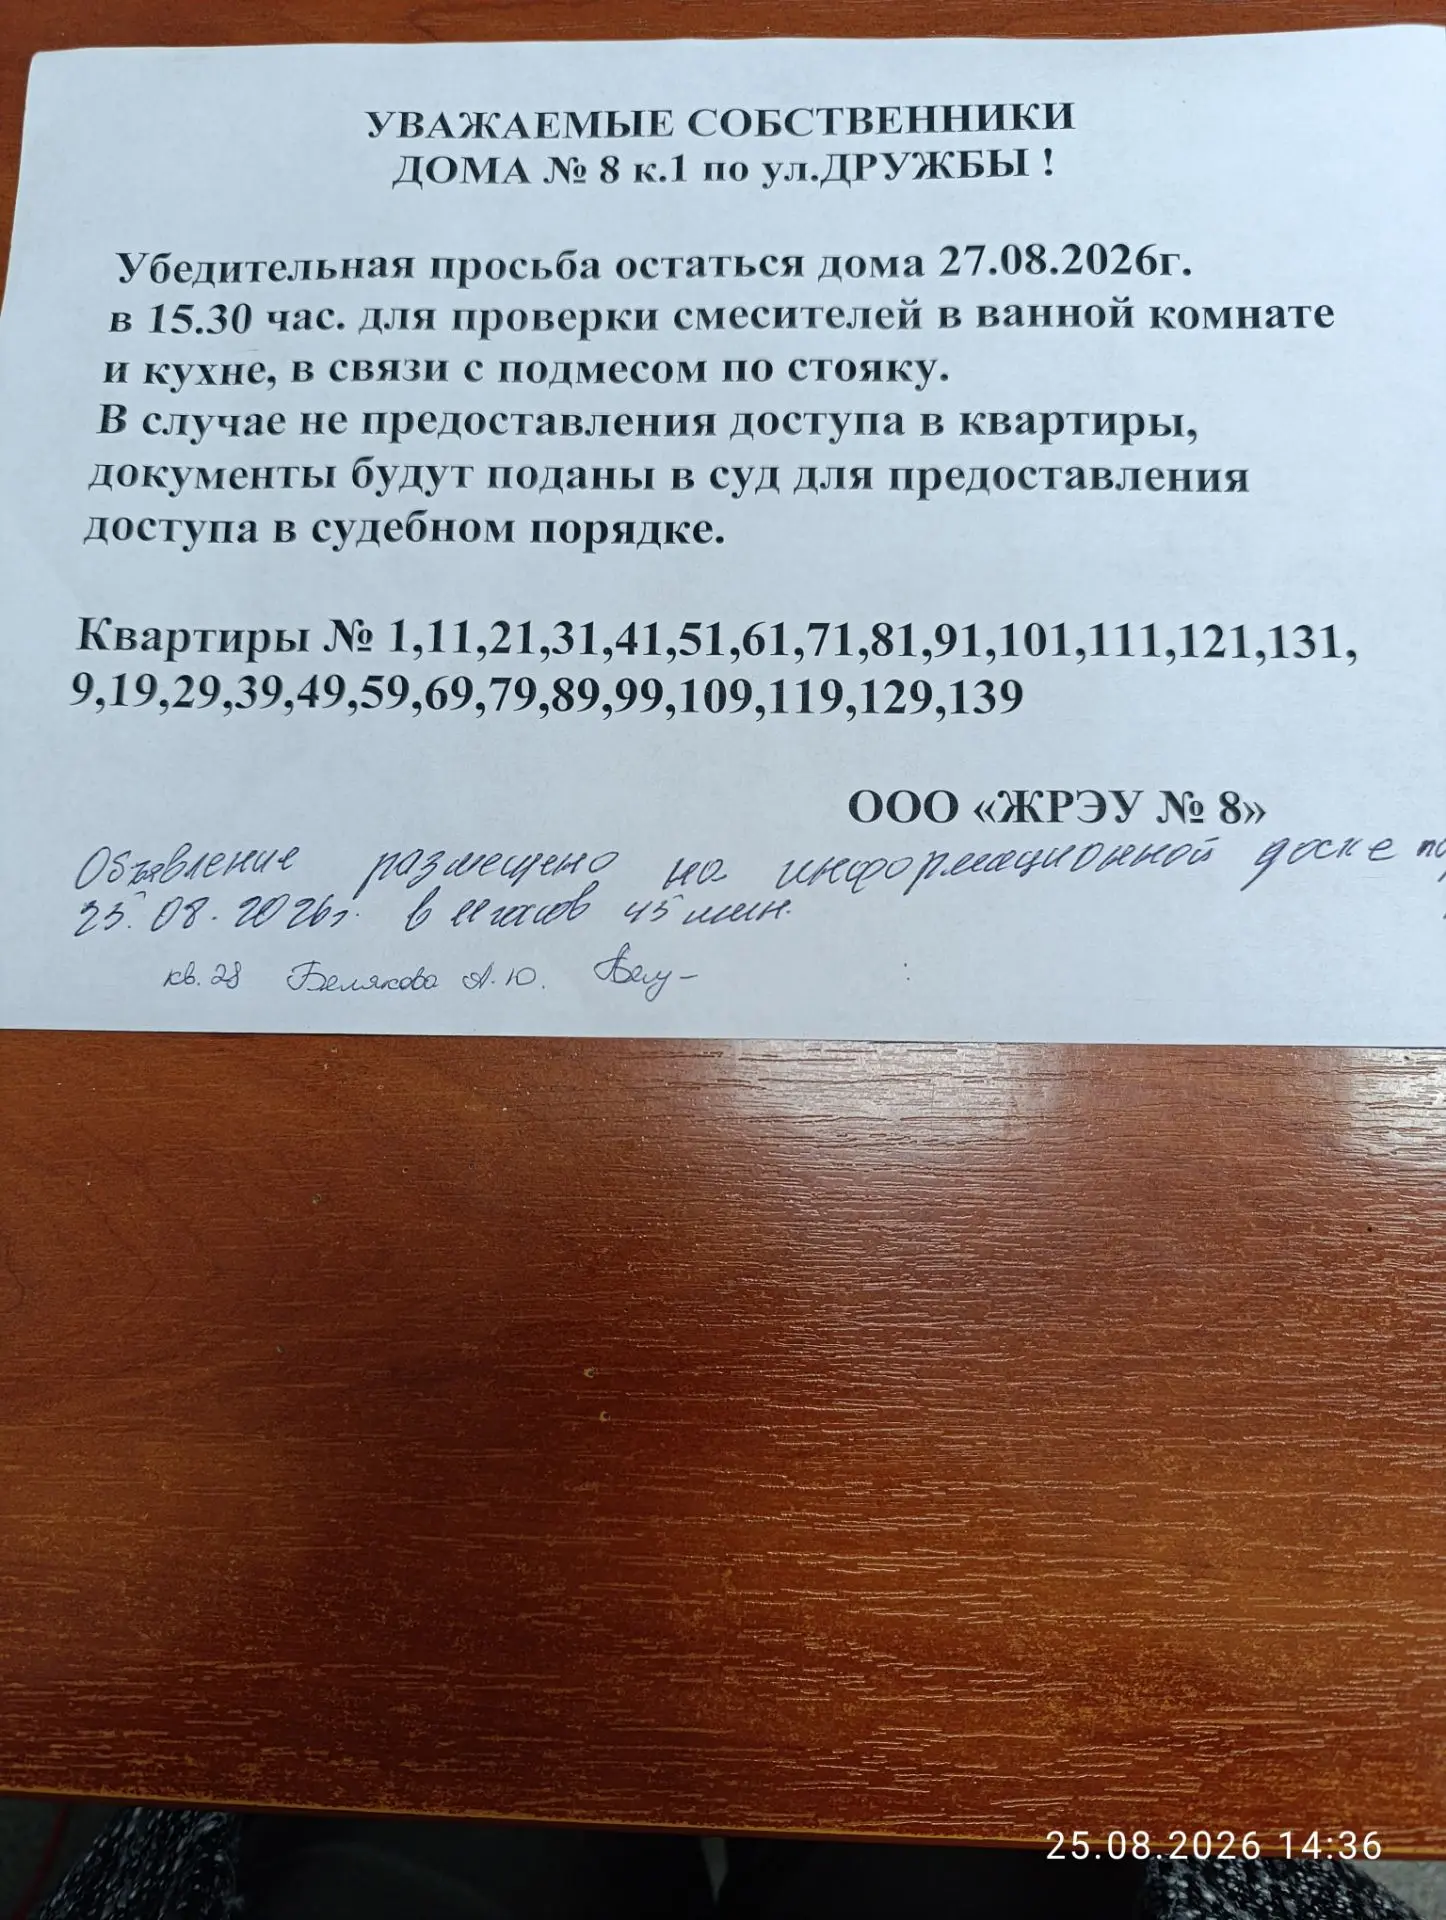 УВАЖАЕМЫЕ СОБСТВЕННИКИ
ДОМА № 8 к.1 по ул.ДРУЖБЫ !
Убедительная просьба остаться дома 27.08.2026г.
в 15.30 час. для проверки смесителей в ванной комнате
и кухне, в связи с подмесом по стояку.
В случае не предоставления доступа в квартиры,
документы будут поданы в суд для предоставления
доступа в судебном порядке.
Квартиры № 1,11,21,31,41,51,61,71,81,91,101,111,121,131,
9,19,29,39,49,59,69,79,89,99,109,119,129,139
ООО «ЖРЭУ № 8»
Объявление размещено на информационной доске
25.08.2026г. в 11 часов 45 мин.
кв. 28 Белякова А.Ю.
25.08.2026 14:36